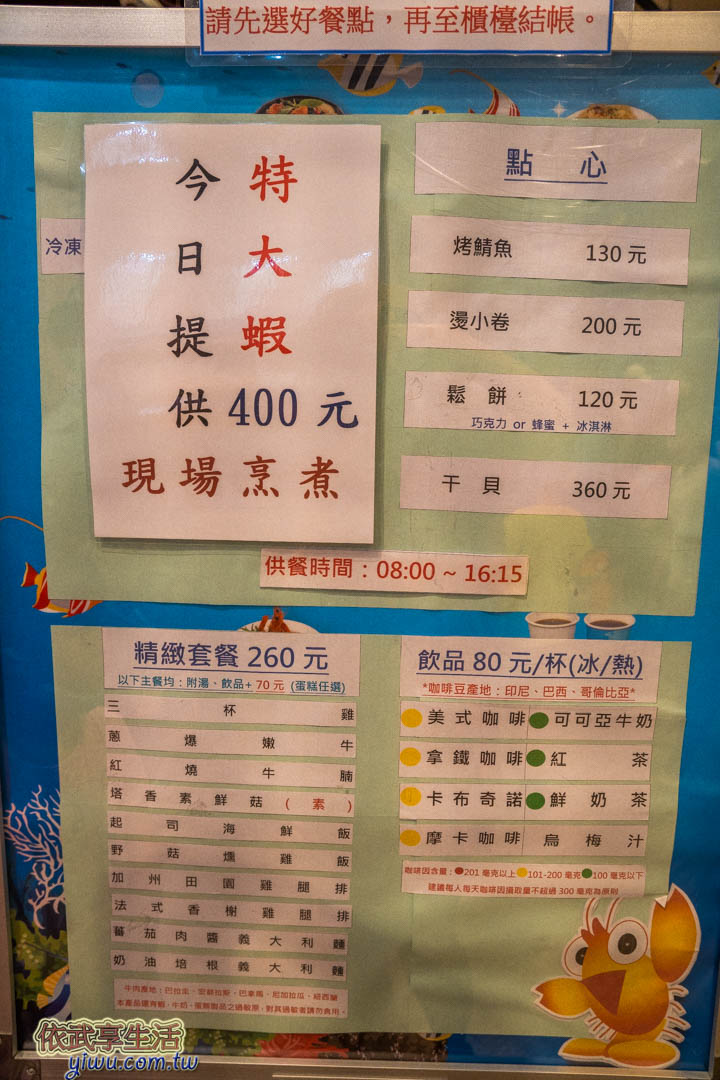 請先選好餐點，再至櫃檯結帳。
冷凍
今日提供
特大蝦
400 元
現場烹煮
點 心
烤鯖魚 130 元
燙小卷 200 元
鬆 餅 120 元
巧克力 or 蜂蜜 + 冰淇淋
干 貝 360 元
供餐時間：08:00 ~ 16:15
精緻套餐 260 元
以下主餐均：附湯、飲品+ 70 元 (蛋糕任選)
三杯雞
蔥爆嫩牛
紅燒牛腩
塔香素鮮菇(素)
起司海鮮飯
野菇燻雞飯
加州田園雞腿排
法式香榭雞腿排
蕃茄肉醬義大利麵
奶油培根義大利麵
牛肉產地：巴拉圭、宏都拉斯、巴拿馬、尼加拉瓜、紐西蘭
本產品還有蝦、牛奶、蛋類製品之過敏原，對其過敏者請勿食用。
飲品 80 元/杯(冰/熱)
*咖啡豆產地：印尼、巴西、哥倫比亞*
美式咖啡 可可亞牛奶
拿鐵咖啡 紅茶
卡布奇諾 鮮奶茶
摩卡咖啡 烏梅汁
咖啡因含量：201 毫克以上 101-200 毫克 100 毫克以下
建議每人每天咖啡因攝取量不超過 300 毫克為原則
依武享生活
yiwu.com.tw